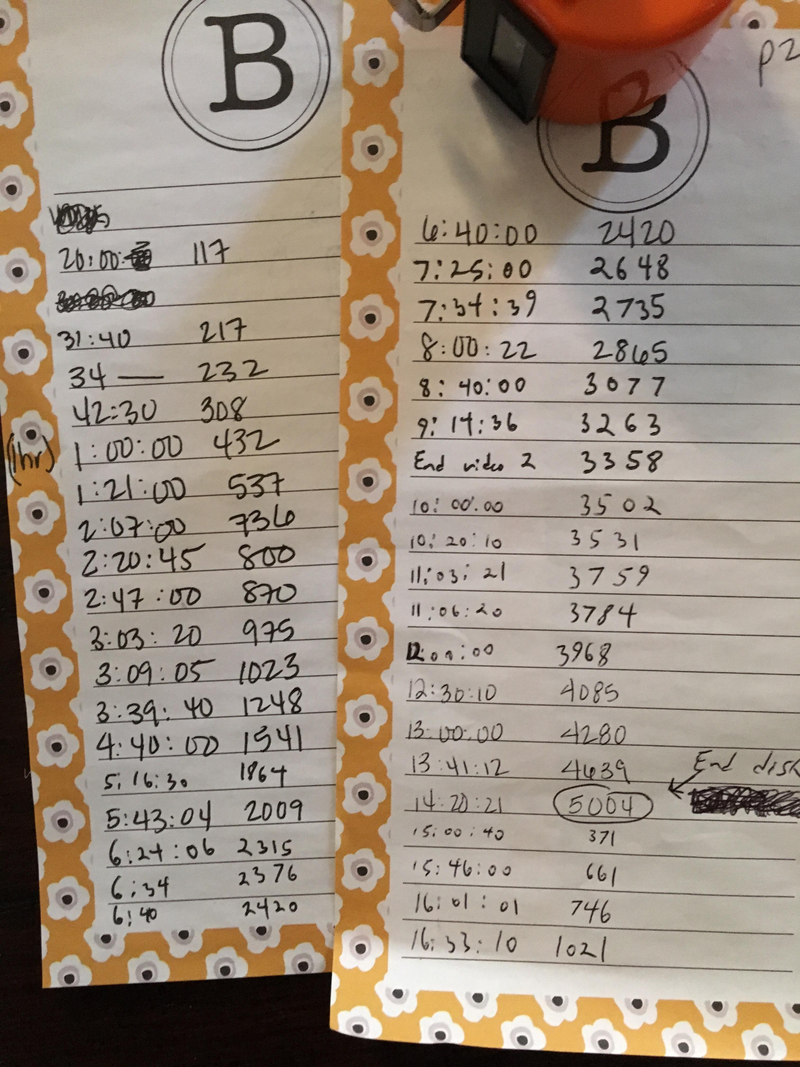 B
20:00: 117
31:40 217
34 — 232
42:30 308
(1hr) 1:00:00 432
1:21:00 537
2:07:00 736
2:20:45 800
2:47:00 870
3:03:20 975
3:09:05 1023
3:39:40 1248
4:40:00 1541
5:16:30 1864
5:43:04 2009
6:24:06 2315
6:34 2376
6:40 2420
p2
B
6:40:00 2420
7:25:00 2648
7:34:39 2735
8:00:22 2865
8:40:00 3077
9:14:36 3263
End video 2 3358
10:00:00 3502
10:20:10 3531
11:03:21 3759
11:06:20 3784
12:00:00 3968
12:30:10 4085
13:00:00 4280
13:41:12 4639
End disk
14:20:21 5004
15:00:40 371
15:46:00 661
16:01:01 746
16:33:10 1021